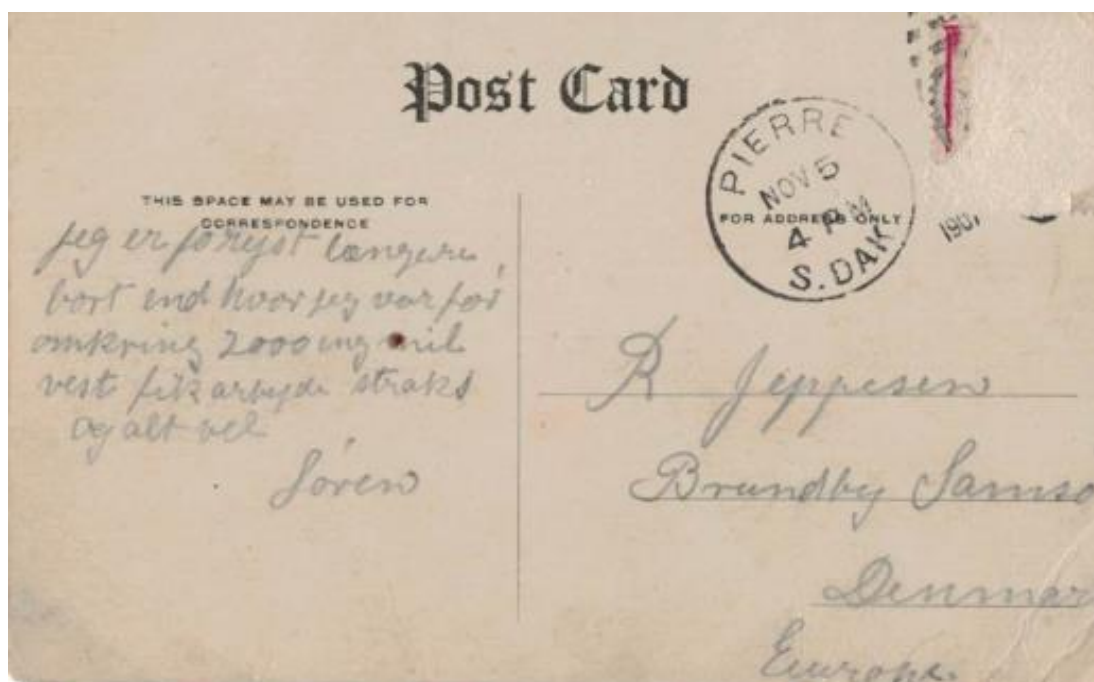 Post Card
THIS SPACE MAY BE USED FOR
CORRESPONDENCE
jeg er forryst længere
bort end hvor jeg var før
omkring 2000 eng mil
vest fik arbyde straks
og alt vel
Søren
PIERRE
NOV 5
4 PM
S. DAK
1907
FOR ADDRESS ONLY
R Jeppesen
Brundby Samsø
Denmar
Europe.